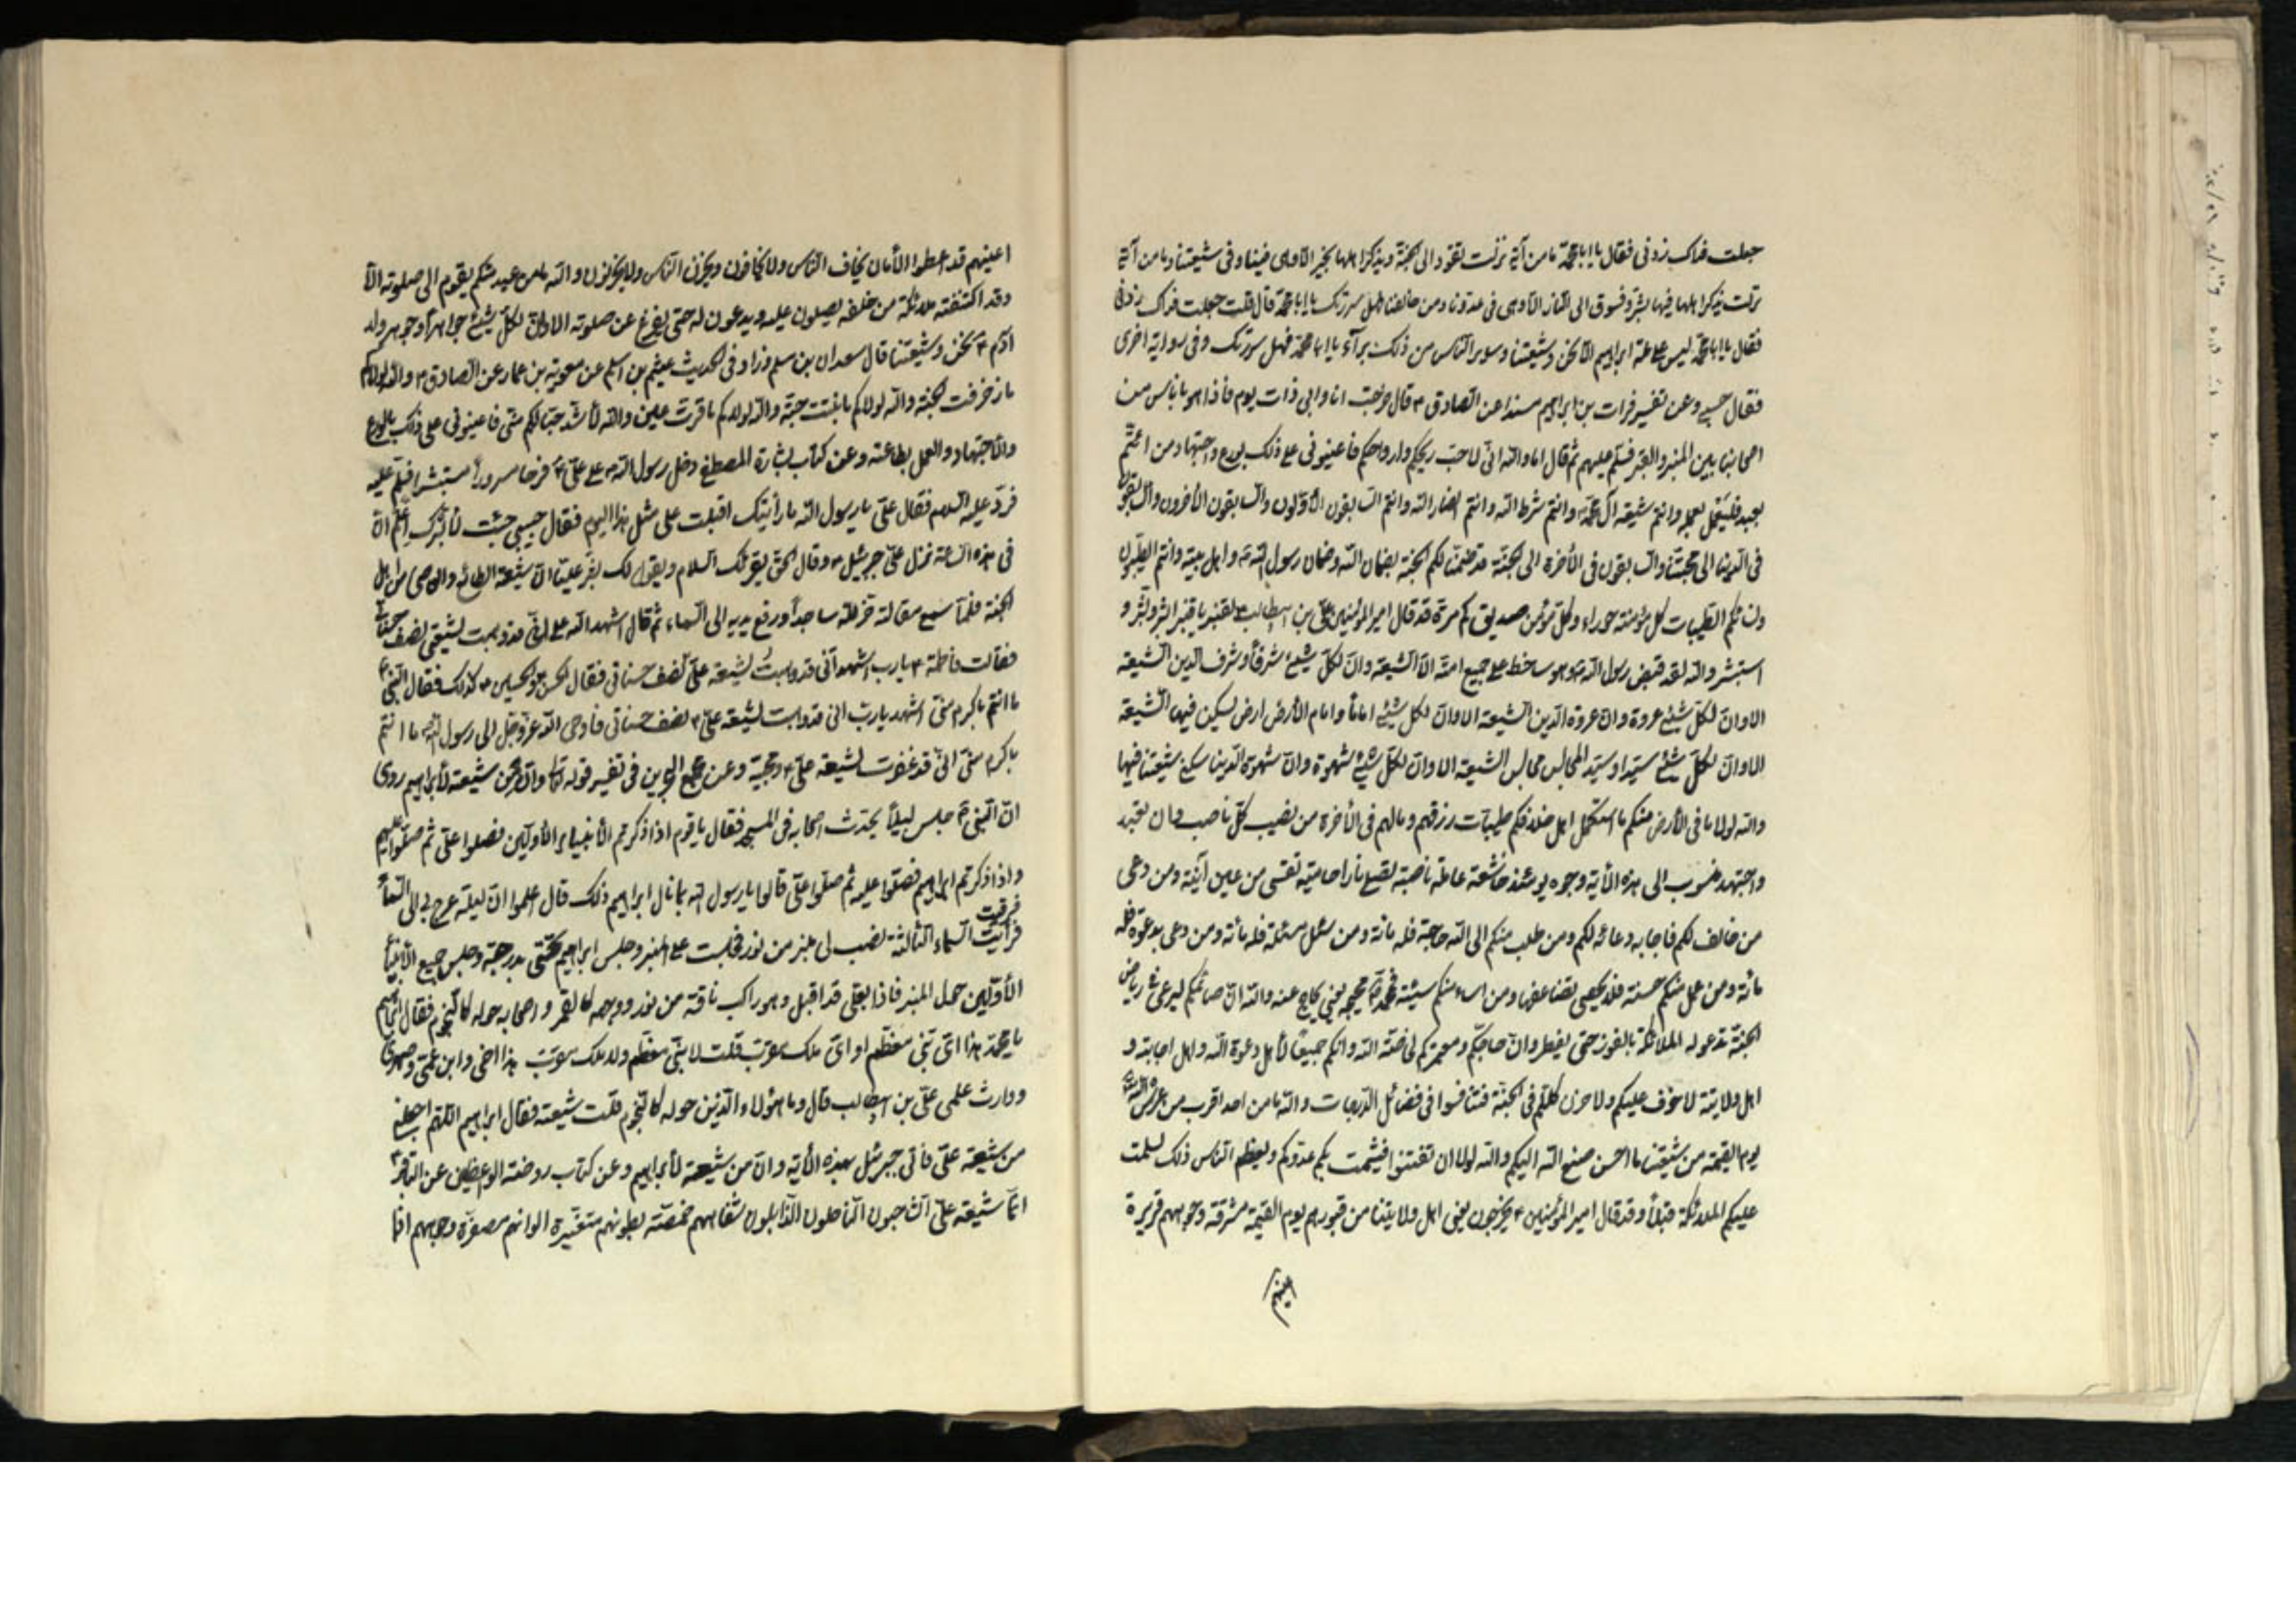 جعلت فداك زدني فقال يا ابا محمد ما من آية نزلت تقود الى الجنة ويذكر اهلها بخير الا وهي فينا وفي شيعتنا وما من آية
نزلت يذكر اهلها فيها بشر وتسوق الى النار الا وهي في عدونا ومن خالفنا فهل سررتك يا ابا محمد قال قلت جعلت فداك زدني
فقال يا ابا محمد ليس على ملة ابراهيم الا نحن وشيعتنا وسائر الناس من ذلك برآء يا ابا محمد فهل سررتك وفي رواية اخرى
فقال حسبي وعن تفسير فرات بن ابراهيم مسندا عن الصادق ع قال خرجت انا وابي ذات يوم فاذا هو باناس من
اصحابنا بين المنبر والقبر فسلم عليهم ثم قال اما والله اني لاحب ريحكم وارواحكم فاعينوني على ذلك بورع واجتهاد من ائتم
بعبد فليعمل بعمله وانتم شيعة آل محمد وانتم شرط الله وانتم انصار الله وانتم السابقون الأولون والسابقون الآخرون والسابقون
في الدنيا الى محبتنا والسابقون في الآخرة الى الجنة قد ضمنت لكم الجنة بضمان الله وضمان رسول الله ص واهل بيته وانتم الطيبون
ونسائكم الطيبات كل مؤمنة حوراء وكل مؤمن صديق كم مرة قد قال امير المؤمنين علي بن ابيطالب ع لقنبر يا قنبر ابشر وبشر و
استبشر والله لقد قبض رسول الله ص وهو ساخط على جميع امته الا الشيعة وان لكل شيئ شرفاً وشرف الدين الشيعة
الا وان لكل شيئ عروة وان عروة الدين الشيعة الا وان لكل شيئ اماماً وامام الأرض ارض يسكن فيها الشيعة
الا وان لكل شيئ سيدا وسيد المجالس مجالس الشيعة الا وان لكل شيئ شهوة وان شهوة الدنيا سكنى شيعتنا فيها
والله لولا ما في الأرض منكم ما استكمل اهل خلافكم طيبات رزقهم وما لهم في الآخرة من نصيب كل ناصب وان تعبد
واجتهد منسوب الى هذه الآية وجوه يومئذ خاشعة عاملة ناصبة تصلى ناراً حامية تسقى من عين آنية ومن دعى
من خالف لكم فاجابة دعائه لكم ومن طلب منكم الى الله حاجة فله مائة ومن سئل مسئلة فله مائة ومن دعى بدعوة فله
مائة ومن عمل منكم حسنة فلا يحصى تضاعفها ومن اساء منكم سيئة فمحمد ص حجيجه يعني يحاج عنه والله ان صائمكم ليرعى في رياض
الجنة تدعو له الملائكة بالفوز حتى يفطر وان حاجكم ومعتمركم لخاصة الله وانكم جميعاً لأهل دعوة الله واهل اجابته و
اهل ولايته لا خوف عليكم ولا حزن كلكم في الجنة فتنافسوا في فضائل الدرجات والله ما من احد اقرب من عرش الله
يوم القيمة من شيعتنا ما احسن صنع الله اليكم والله لولا ان تفتتنوا فيشمت بكم عدوكم ويعظم الناس ذلك لسلمت
عليكم الملائكة قبلاً وقد قال امير المؤمنين ع يخرجون يعني اهل ولايتنا من قبورهم يوم القيمة مشرقة وجوههم قريرة
اعينهم
اعينهم قد اعطوا الأمان يخاف الناس ولا يخافون ويحزن الناس ولا يحزنون والله ما من عبد منكم يقوم الى صلوته الا
وقد اكتنفته ملائكة من خلفه يصلون عليه ويدعون له حتى يفرغ عن صلوته الا وان لكل شيئ جواهراً وجوهر ولد
آدم ع نحن وشيعتنا قال سعدان بن مسلم وزاد في الحديث عيثم بن اسلم عن معوية بن عمار عن الصادق ع والله لولاكم
ما زخرفت الجنة والله لولاكم ما نبتت حبة والله لولاكم ما قرت عين والله لأشد حبا لكم مني فاعينوني على ذلك بالورع
والاجتهاد والعمل بطاعته وعن كتاب بشارة المصطفى دخل رسول الله ص على علي ع فرحا مسروراً مستبشرا فسلم عليه
فرد عليه السلام فقال علي يا رسول الله ما رأيتك اقبلت على مثل هذا اليوم فقال حبيبي جئت لأبشرك اعلم ان
في هذه الساعة نزل علي جبرئيل ع وقال الحق يقرئك السلام ويقول لك بشر عليا ان شيعته الطائع والعاصي من اهل
الجنة فلما سمع مقالته خر لله ساجداً ورفع يديه الى السماء ثم قال اشهد الله علي اني قد وهبت لشيعتي نصف حسناتي
فقالت فاطمة ع يا رب اشهد اني قد وهبت لشيعة علي نصف حسناتي فقال الحسن والحسين ع كذلك فقال النبي ص
ما انتم باكرم مني اشهد يا رب اني قد وهبت لشيعة علي ع نصف حسناتي فاوحى الله عز وجل الى رسول الله ص ما انتم
باكرم مني اني قد غفرت لشيعة علي ع ومحبيه وعن مجمع البحرين في تفسير قوله تعالى وان من شيعته لأبراهيم روى
ان النبي ص جلس ليلاً يحدث اصحابه في المسجد فقال يا قوم اذا ذكرتم الأنبياء الأولين فصلوا علي ثم صلوا عليهم
واذا ذكرتم ابراهيم فصلوا عليه ثم صلوا علي قالوا يا رسول الله بما نال ابراهيم ذلك قال اعلموا ان ليلة عرج بي الى السماء
فرقيت السماء الثالثة نصب لي منبر من نور فجلست على المنبر وجلس ابراهيم تحتي بدرجة وجلس جميع الأنبياء
الأولين حول المنبر فاذا بعلي قد اقبل وهو راكب ناقة من نور ووجهه كالقمر واصحابه حوله كالنجوم فقال ابراهيم
يا محمد هذا اي نبي معظم او اي ملك مقرب قلت لا نبي معظم ولا ملك مقرب هذا اخي وابن عمي وصهري
ووارث علمي علي بن ابيطالب قال وما هؤلاء الذين حوله كالنجوم قلت شيعته فقال ابراهيم اللهم اجعلني
من شيعة علي فاتى جبرئيل بهذه الآية وان من شيعته لأبراهيم وعن كتاب روضة الواعظين عن الباقر ع
انما شيعة علي الشاحبون الناحلون الذابلون شفاههم خمصة بطونهم متغيرة الوانهم مصفرة وجوههم اذا